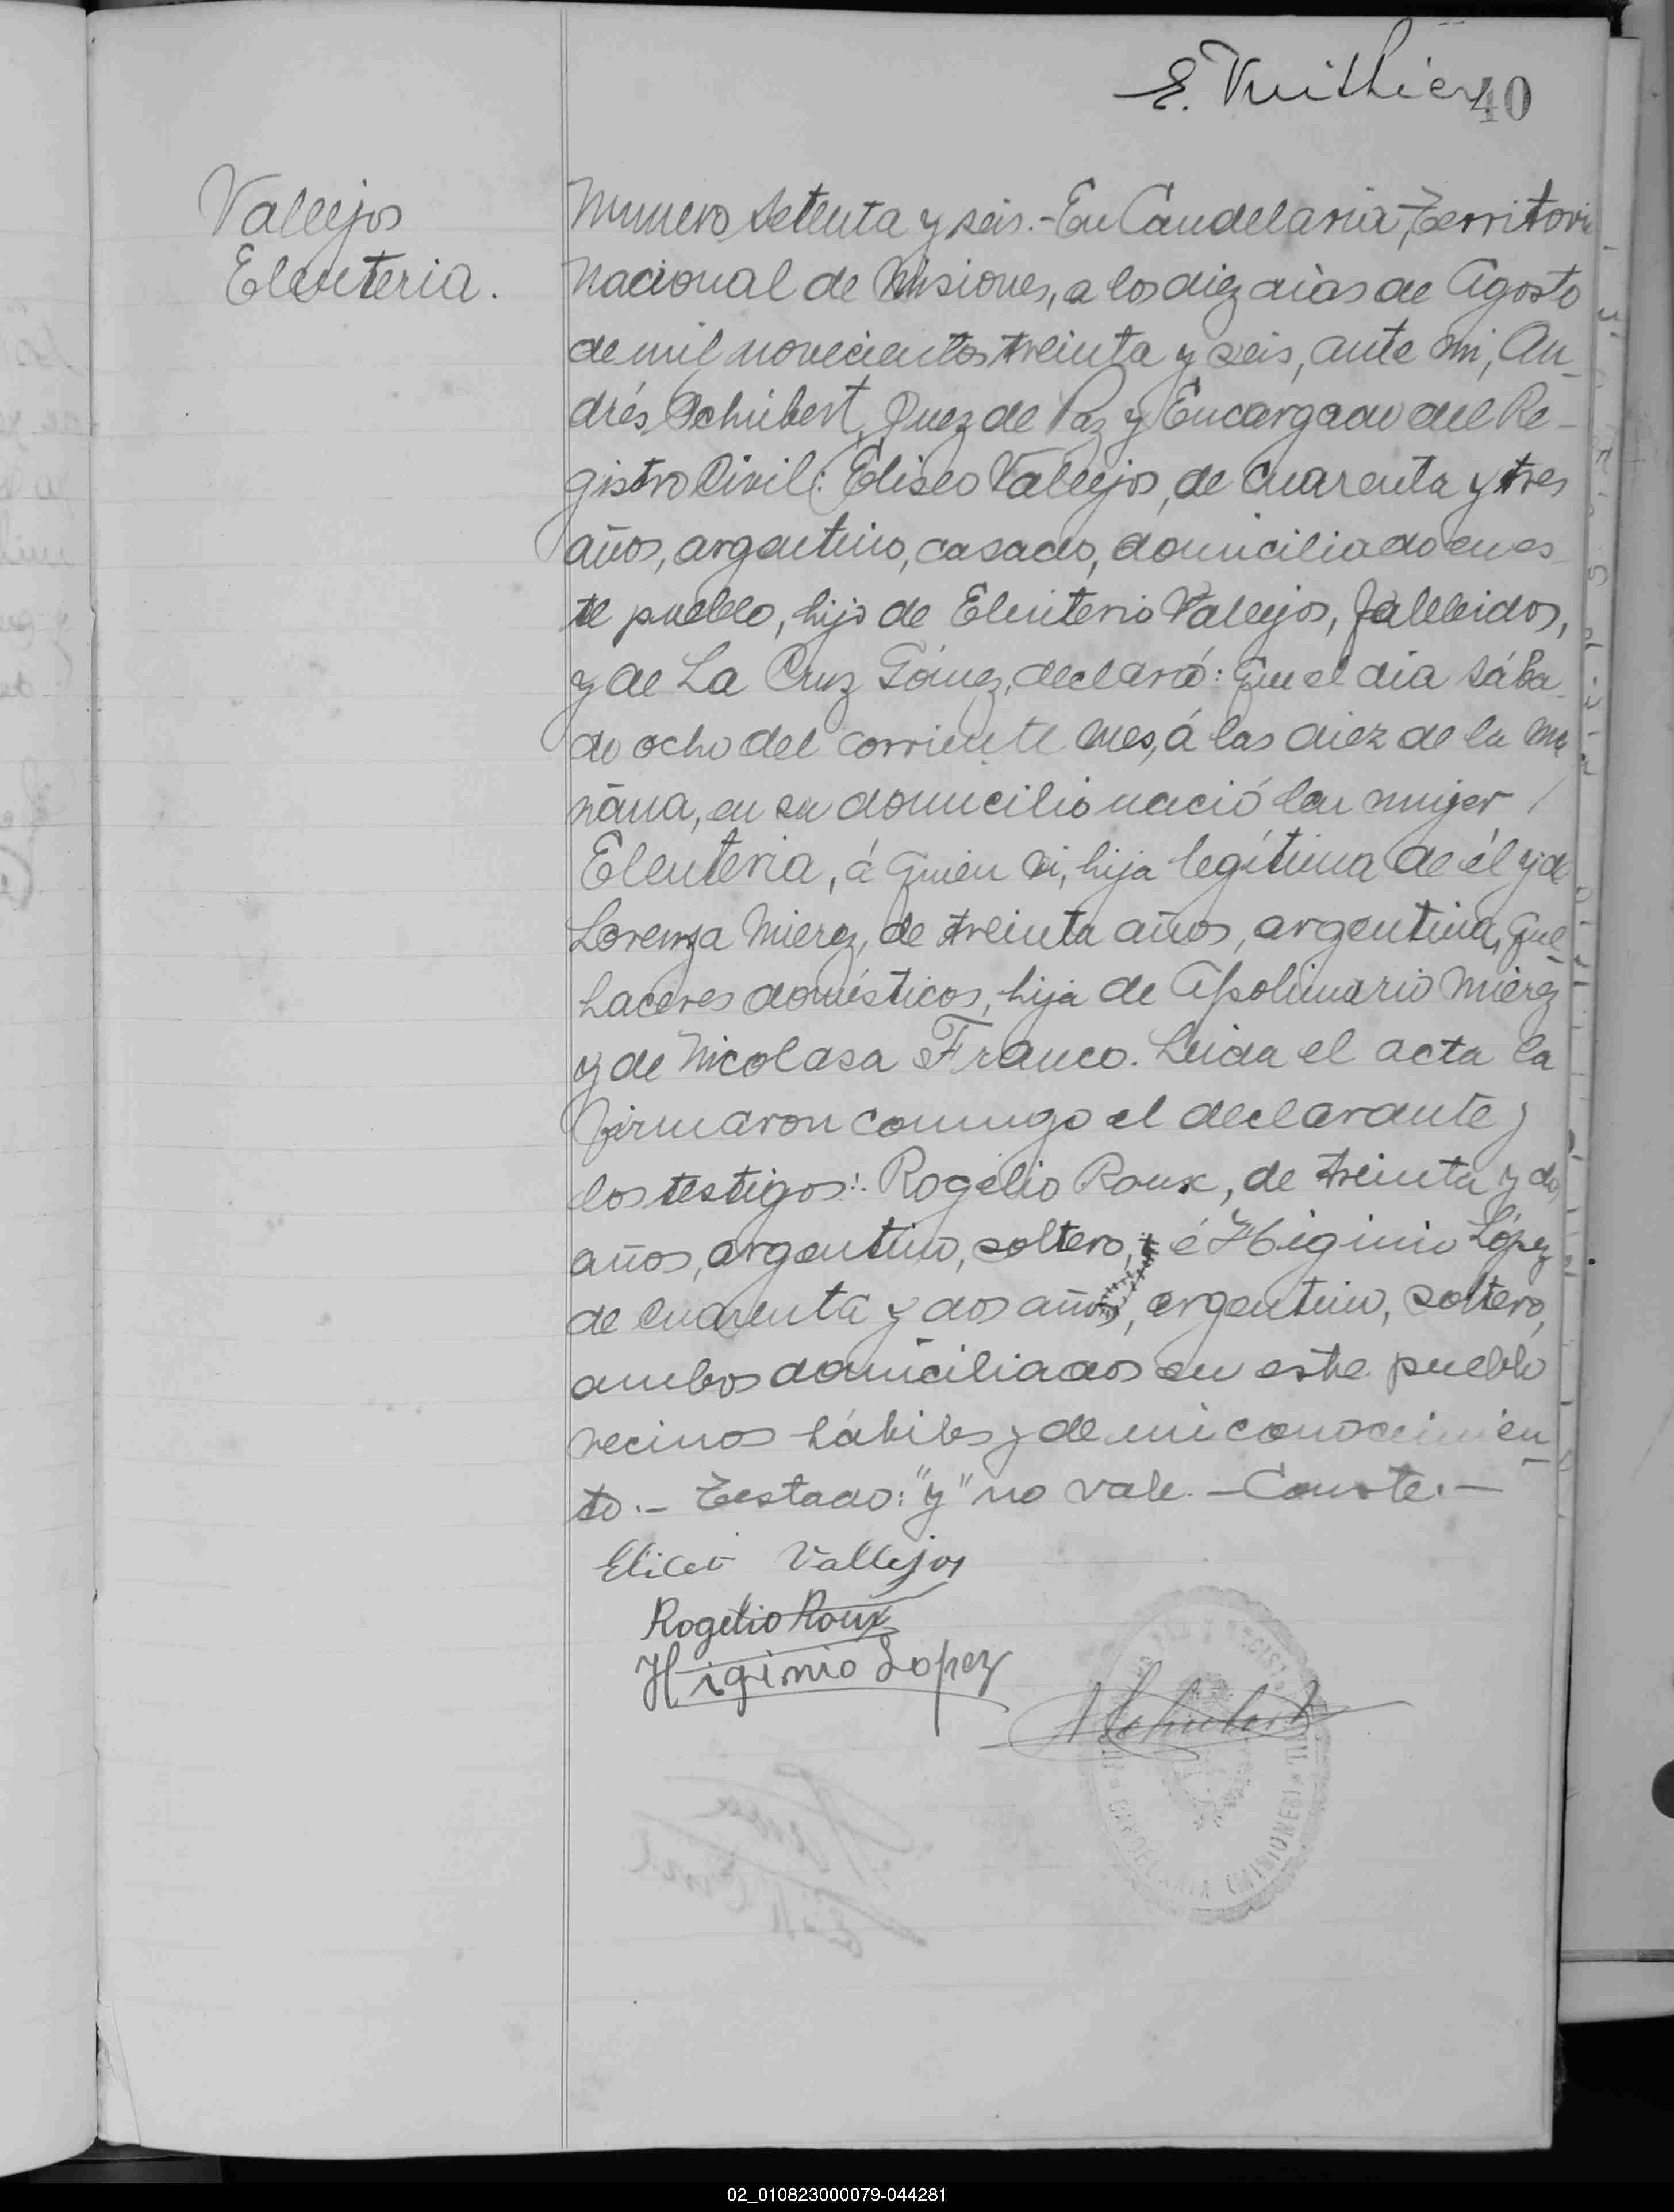 E. Vuithier 40
Vallejos
Eleuteria.
Numero setenta y seis.- En Candelaria, Territori
Nacional de Misiones, a los diez dias de Agosto
de mil novecientos treinta y seis, ante mi, An-
drés Schubert, Juez de Paz y Encargado del Re-
gistro Civil: Eliseo Vallejos, de cuarenta y tres
años, argentino, casado, domiciliado en es-
te pueblo, hijo de Eleuterio Vallejos, fallecidos,
y de La Cruz Gómez, declaró: Que el dia sába-
do ocho del corriente mes, á las diez de la ma
ñana, en su domicilio nació la mujer /
Eleuteria, á quien vi, hija legítima de él y de
Lorenza Mierez, de treinta años, argentina, que-
haceres domésticos, hija de Apolinario Mierez
y de Nicolasa Franco. Leida el acta la
firmaron conmigo el declarante y
los testigos: Rogelio Roux, de treinta y dos
años, argentino, soltero, é Higinio López
de cuarenta y dos años, argentino, soltero,
ambos domiciliados en este pueblo
vecinos hábiles y de mi conocimien-
to.- Testado: "y" no vale.- Conste.-
Eliceo Vallejos
Rogelio Roux
Higinio Lopez
ASchubert
CANDELARIA (MISIONES)
02_010823000079-044281